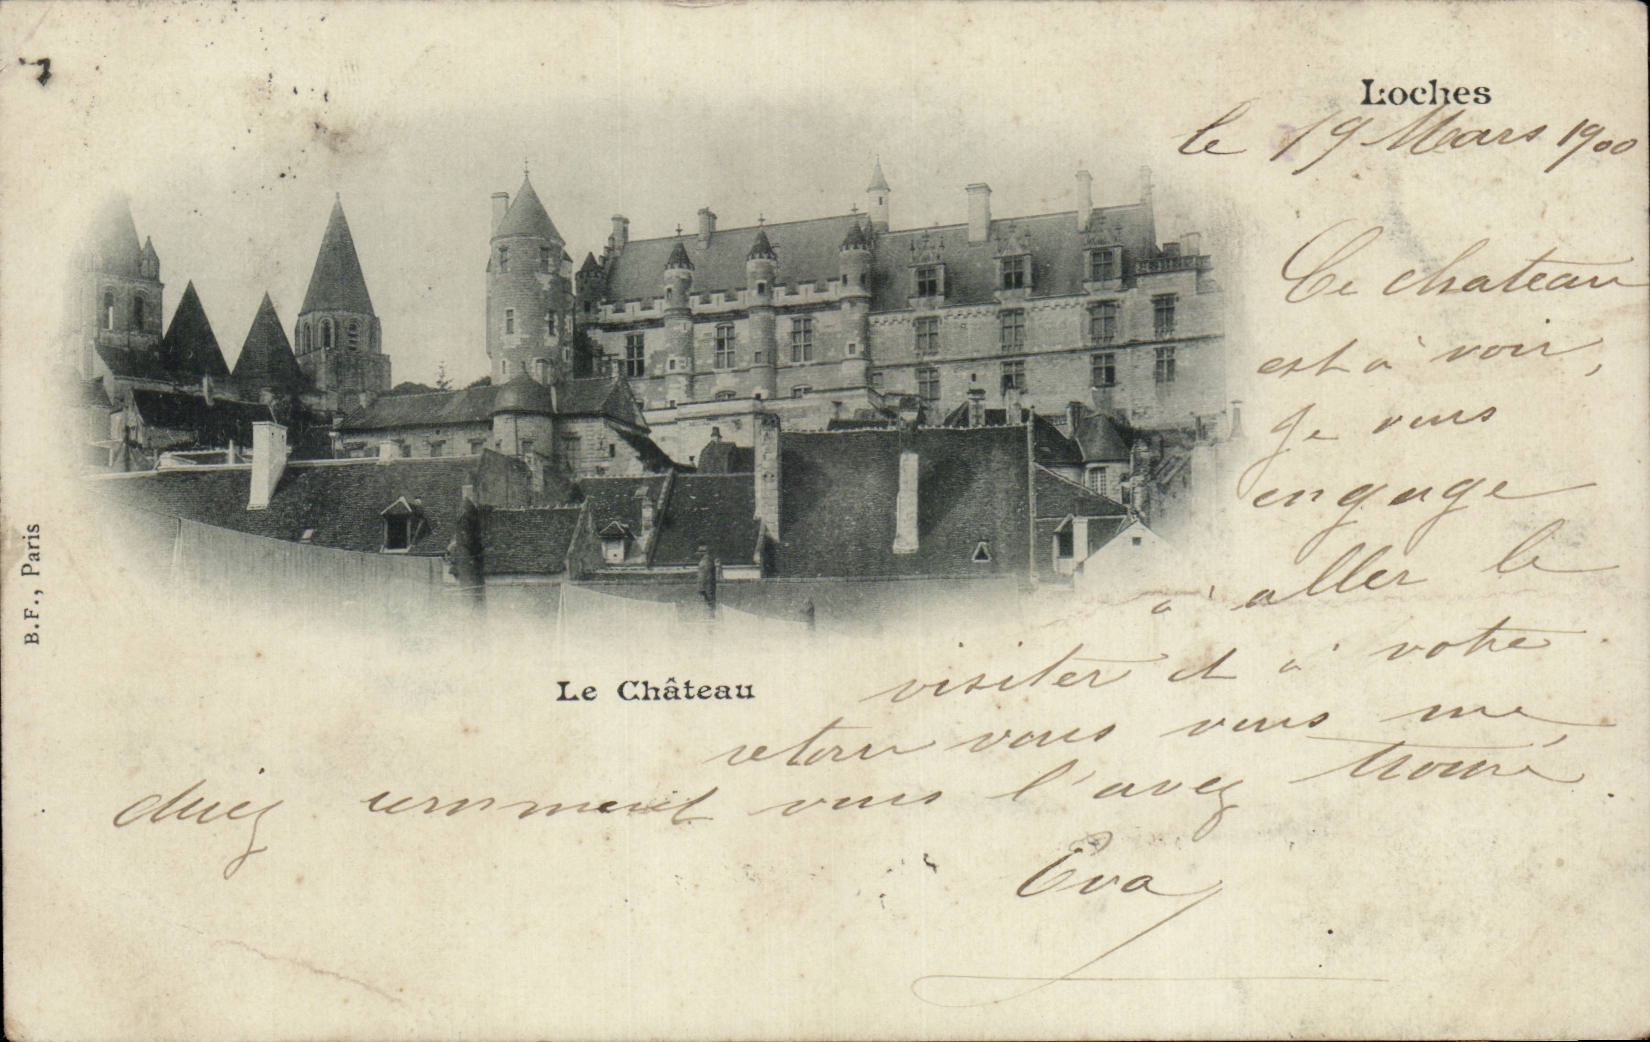 Loches
le 19 Mars 1900
Ce chateau
est à voir,
Je vous
engage
à aller le
visiter et à votre
retour vous vous me
direz comment vous l'avez trouvé.
Eva
Le Château
B.F., Paris